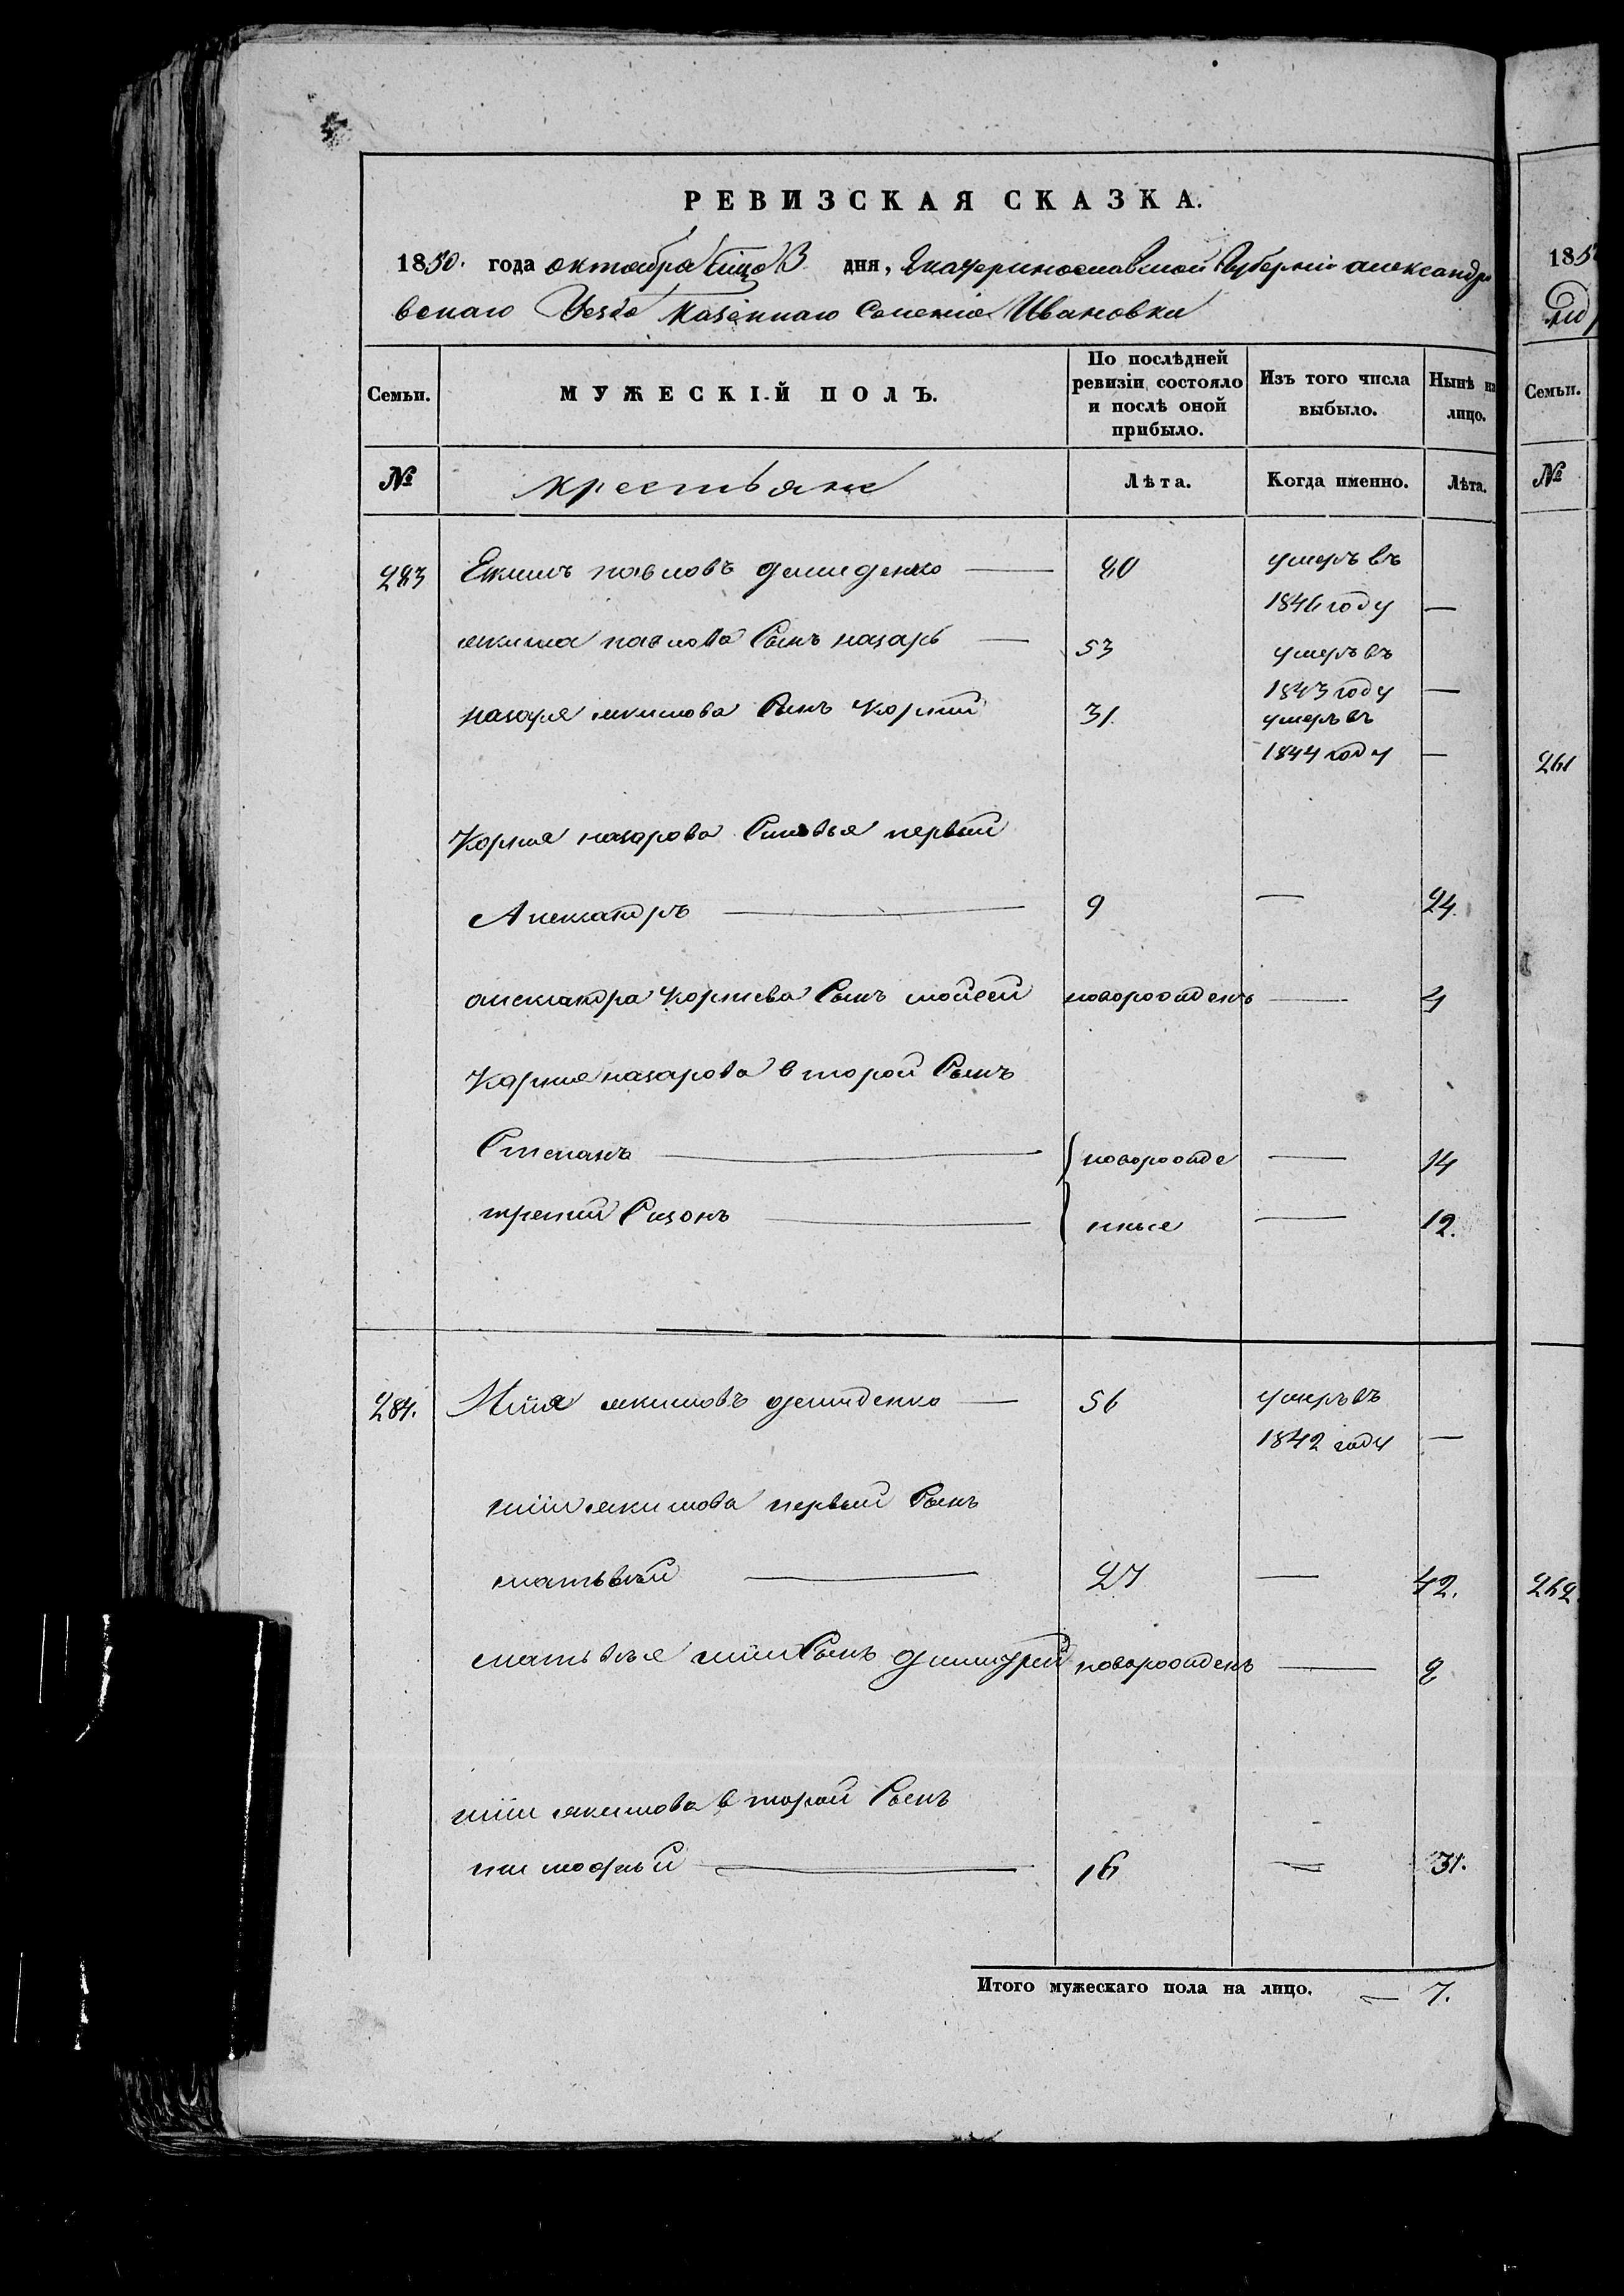 РЕВИЗСКАЯ СКАЗКА.
1850. года октября дня, Екатеринославской Губерніи александро
вскаго Уезда Казеннаго Селенія Ивановки
Семьи.
МУЖЕСКІЙ ПОЛЪ.
По послѣдней ревизіи состояло и послѣ оной прибыло.
Изъ того числа выбыло.
Нынѣ на лицо.
№ крестьяне Лѣта. Когда именно. Лѣта.
283 Екимъ павловъ демиденко — 80 умеръ въ
1846 году —
якима павлова Сынъ назарь — 53 умеръ въ
1843 году —
назаря якимова Сынъ Корній 31. умеръ въ
1844 году —
Корнія назарова Синовья первый
Александръ — 9 — 24.
александра Корніева Сынъ мойсей новорожденъ — 4
Корнія назарова второй Сынъ
Степанъ — новорожде — 14
третій Сизонъ — нные — 12.
284. якимовъ демиденко — 56 умеръ въ
1842 году —
якимова первый Сынъ
матьвѣй — 27 — 42.
матьвѣя Сынъ димитрій новорожденъ — 2
якимова второй Сынъ
тимофѣй — 16 — 31.
Итого мужескаго пола на лицо. — 7.
185
Семьи.
№
261
262.